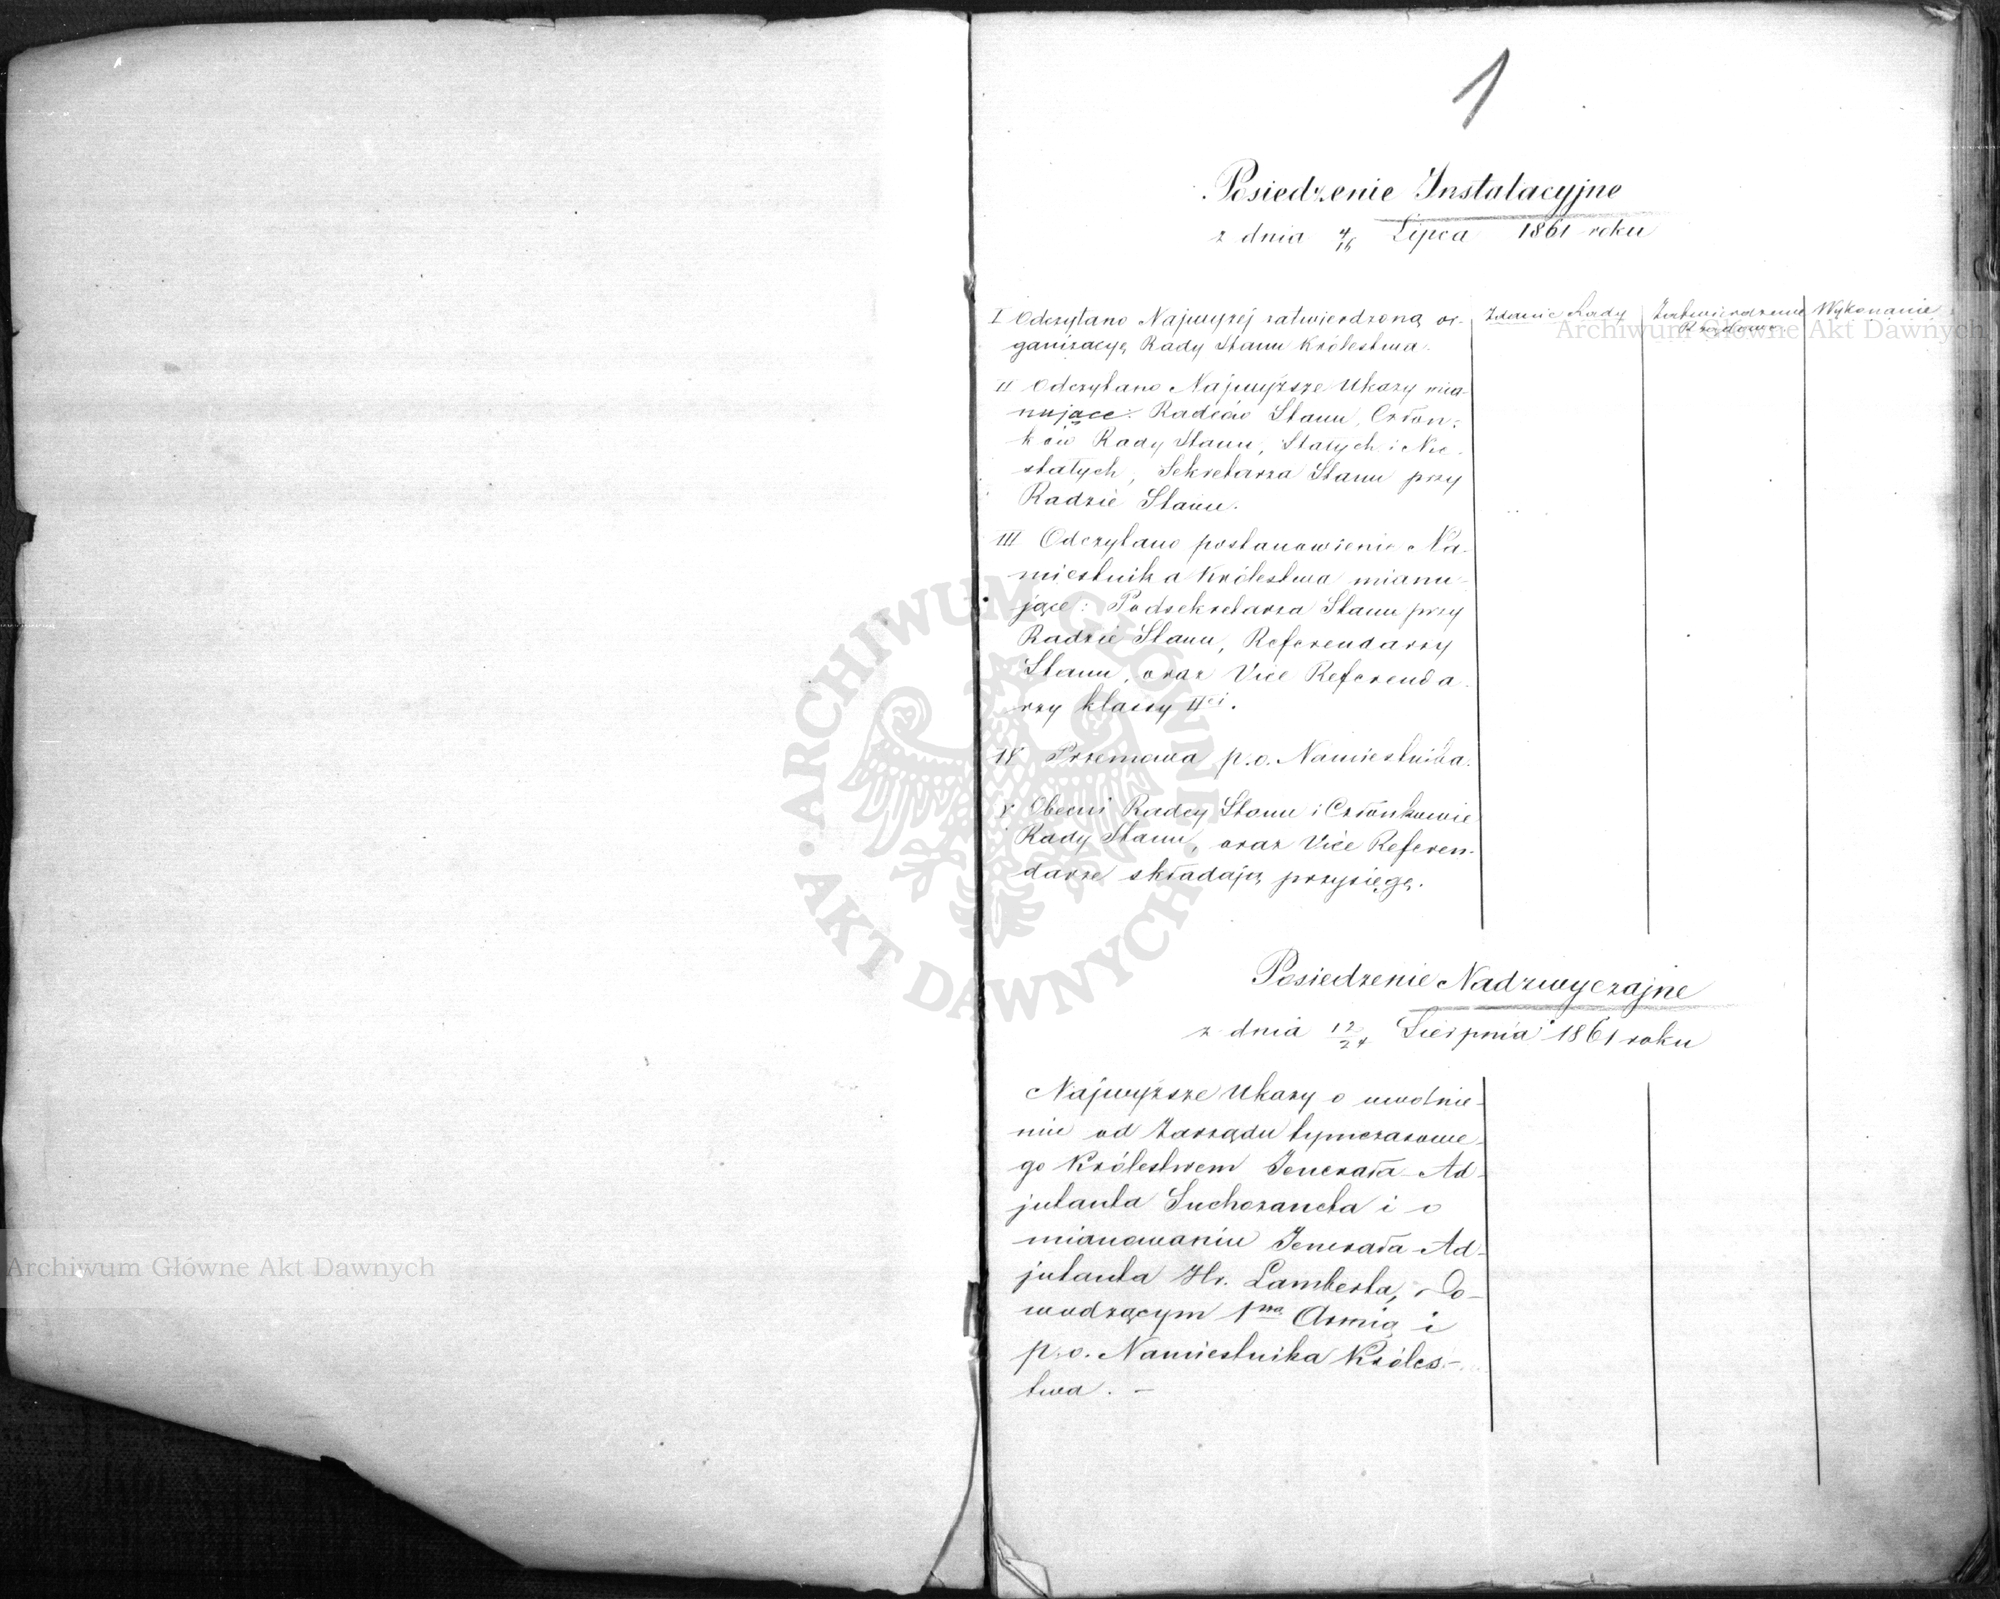 1
Posiedzenie Instalacyjne
z dnia 4/16 Lipca 1861 roku
I Odczytano Najwyżej zatwierdzoną or-
ganizacyę Rady Stanu Królestwa.
Zdanie Rady
Zatwierdzenie
Rządowe
Wykonanie
II Odczytano Najwyższe Ukazy mia-
nujące: Radców Stanu, Człon-
ków Rady Stanu, Stałych i Nie-
stałych, Sekretarza Stanu przy
Radzie Stanu.
III Odczytano postanowienie Na-
miestnika Królestwa mianu-
jące: Podsekretarza Stanu przy
Radzie Stanu, Referendarzy
Stanu, oraz Vice Referenda-
rzy klassy IIei.
IV Przemowa p.o. Namiestnika.
V Obecni Radcy Stanu i Członkowie
Rady Stanu, oraz Vice Referen-
darze składają przysięgę.
Posiedzenie Nadzwyczajne
z dnia 12/24 Sierpnia 1861 roku
Najwyższe Ukazy o uwolnie-
niu od Zarządu tymczasowe-
go Królestwem Jenerała-Ad-
jutanta Suchozaneta i o
mianowaniu Jenerała-Ad-
jutanta Hr. Lamberta, Do-
wodzącym 1szą Armią i
p.o. Namiestnika Króles-
twa. —
ARCHIWUM GŁÓWNE AKT DAWNYCH
Archiwum Główne Akt Dawnych
Archiwum Główne Akt Dawnych